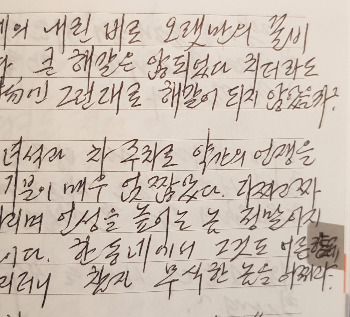 에의 내린 비로 오랫만의 꿀비
다. 큰 해갈은 않되었다 최더라도
그런대로 해갈이 되지 않았을까?
녀석과 차 주차로 약간의 언쟁을
기분이 매우 언짢았다. 따짜고짜
리며 언성을 높이는 놈 정말이지
이다. 한 동네에서 그것도
참지 무식한 놈을 어찌라?